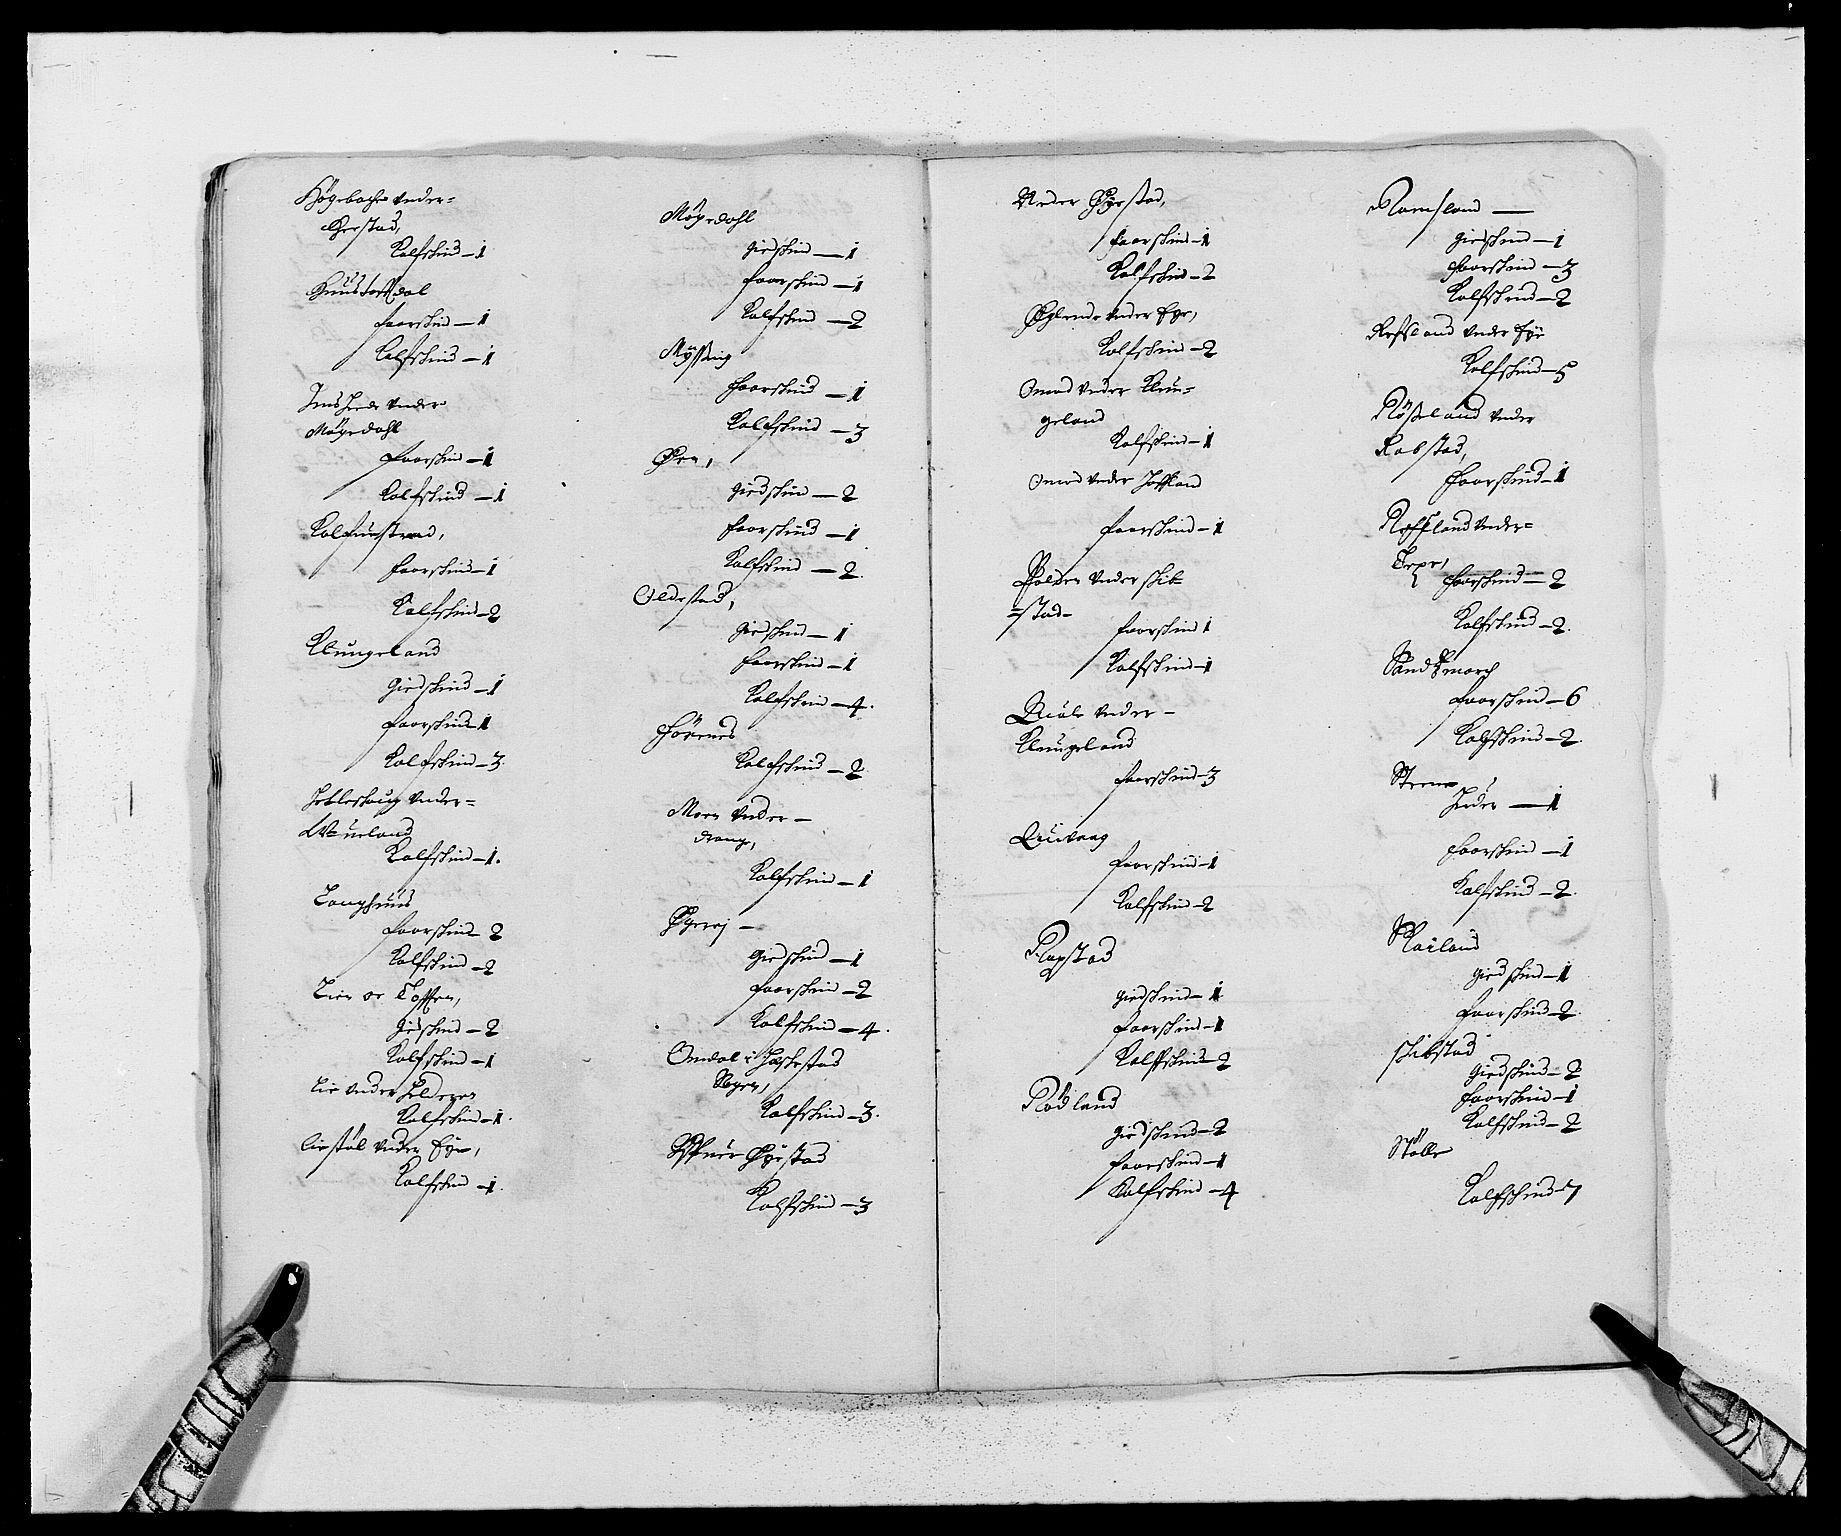 Høgebache Vnder=
Gierstad,
Kalfschind — 1
Knustorfdal
faarschind — 1
Kalfschind — 1
Vnder
Møgedahl
faarschind — 1
Kalfschind — 1
faarschind — 1
Kalfschind — 2
Klungeland
giedschind — 1
faarschind — 1
Kalfschind — 3.
Vnder=
Kalfschind — 1.
Langhuus
faarschind — 2
Kalfschind — 2
Lien
giedschind — 2
Kalfschind — 1
Lie Vnder
Kalfschind — 1.
Liestøl Vnder Eye,
Kalfschind — 1.
Møgedahl
giedschind — 1
faarschind — 1
Kalfschind — 2
Myssing
faarschind — 1
Kalfschind — 3
Øen,
giedschind — 2
faarschind — 1
Kalfschind — 2.
Oldestad,
giedschind — 1
faarschind — 1
Kalfschind — 4.
Kalfschind — 2
Moen Vnder —
Drange,
Kalfschind — 1
giedschind — 1
faarschind — 2
Kalfschind — 4.
Omdal i Heschestad
Sogen,
Kalfschind — 3.
Øyestad
Kalfschind — 3
Neder Øyestad,
faarschind — 1
Kalfschind — 2
Øglend Vnder Eye,
Kalfschind — 2
Omod Vnder Klun=
geland
Kalfschind — 1
Omod Vnder
faarschind — 1
Vnder Skib
=stad
faarschind 1
Kalfschind — 1
Qviale Vnder —
Klungeland
faarschind — 3
faarschind — 1
Kalfschind — 2
Rapstad
giedschind — 1
faarschind — 1
Kalfschind — 2
Rødland
giedschind — 2
faarschind — 1
Kalfschind — 4
Ramsland —
giedschind — 1
faarschind — 3
Kalfschind — 2
Refsland Vnder Eye
Kalfschind — 5
Røseland Vnder
Rabstad,
faarschind — 1
Vnder=
faarschind — 2
Kalfschind — 2.
Sandsmarch
faarschind — 6
Kalfschind — 2.
Steene
— 1
faarschind — 1
Kalfschind — 2.
giedschind — 1
faarschind — 2.
Skibstad
giedschind — 2
faarschind — 1
Kalfschind — 2
Stølle
Kalfschind — 7